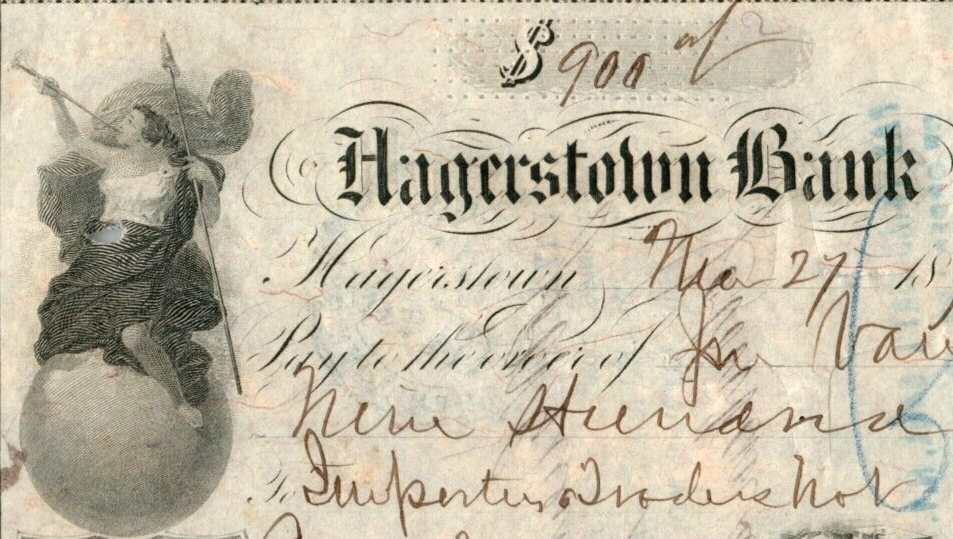 $ 900
Hagerstown Bank
Hagerstown 27 18
Pay to the order of Jno
Nine Hundred
To Importers Traders Nat